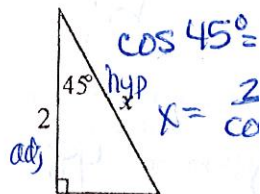 cos 45° =
45° hyp
x
2
x = 2
adj